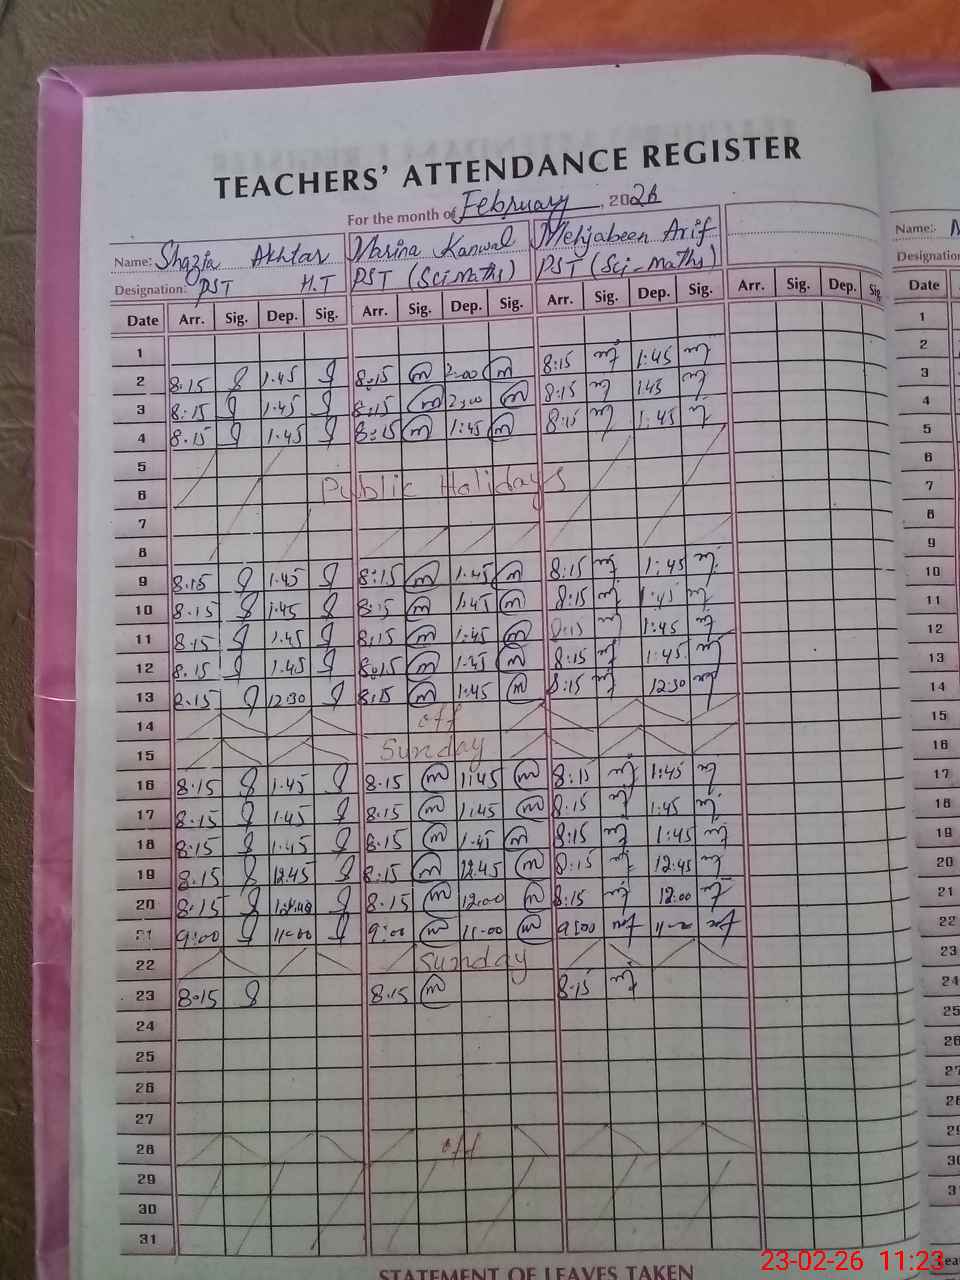 TEACHERS' ATTENDANCE REGISTER
For the month of February, 2026
Name: Shazia Akhtar Narina Kanwal Mehjabeen Arif
Designation: PST H.T PST (Sci-Maths) PST (Sci-Maths)
Date Arr. Sig. Dep. Sig. Arr. Sig. Dep. Sig. Arr. Sig. Dep. Sig. Arr. Sig. Dep. Sig.
1
2 8.15 1.45 8:15 2:00 8:15 1:45
3 8:15 1.45 8:15 2:00 8:15 1:45
4 8.15 1.45 8:15 1:45 8:15 1:45
5
6 Public Holidays
7
8
9 8.15 1.45 8:15 1.45 8:15 1:45
10 8.15 1.45 8:15 1:45 8:15 1:45
11 8.15 1.45 8:15 1:45 8:15 1:45
12 8.15 1.45 8:15 1:45 8:15 1:45
13 8.15 12:30 8:15 1:45 8:15 12:30
14 off
15 Sunday
16 8.15 1.45 8.15 1:45 8:15 1:45
17 8.15 1.45 8.15 1:45 8.15 1:45
18 8.15 1.45 8.15 1.45 8:15 1:45
19 8.15 12.45 8:15 12.45 8:15 12:45
20 8.15 8.15 12:00 8:15 12:00
21 9:00 11:00 9:00 11:00 9:00 11:00
22 Sunday
23 8.15 8.15 8.15
24
25
26
27
28 off
29
30
31
STATEMENT OF LEAVES TAKEN
Name:-
Designation
Date
1
2
3
4
5
6
7
8
9
10
11
12
13
14
15
16
17
18
19
20
21
22
23
24
25
26
27
28
29
30
23-02-26 11:23